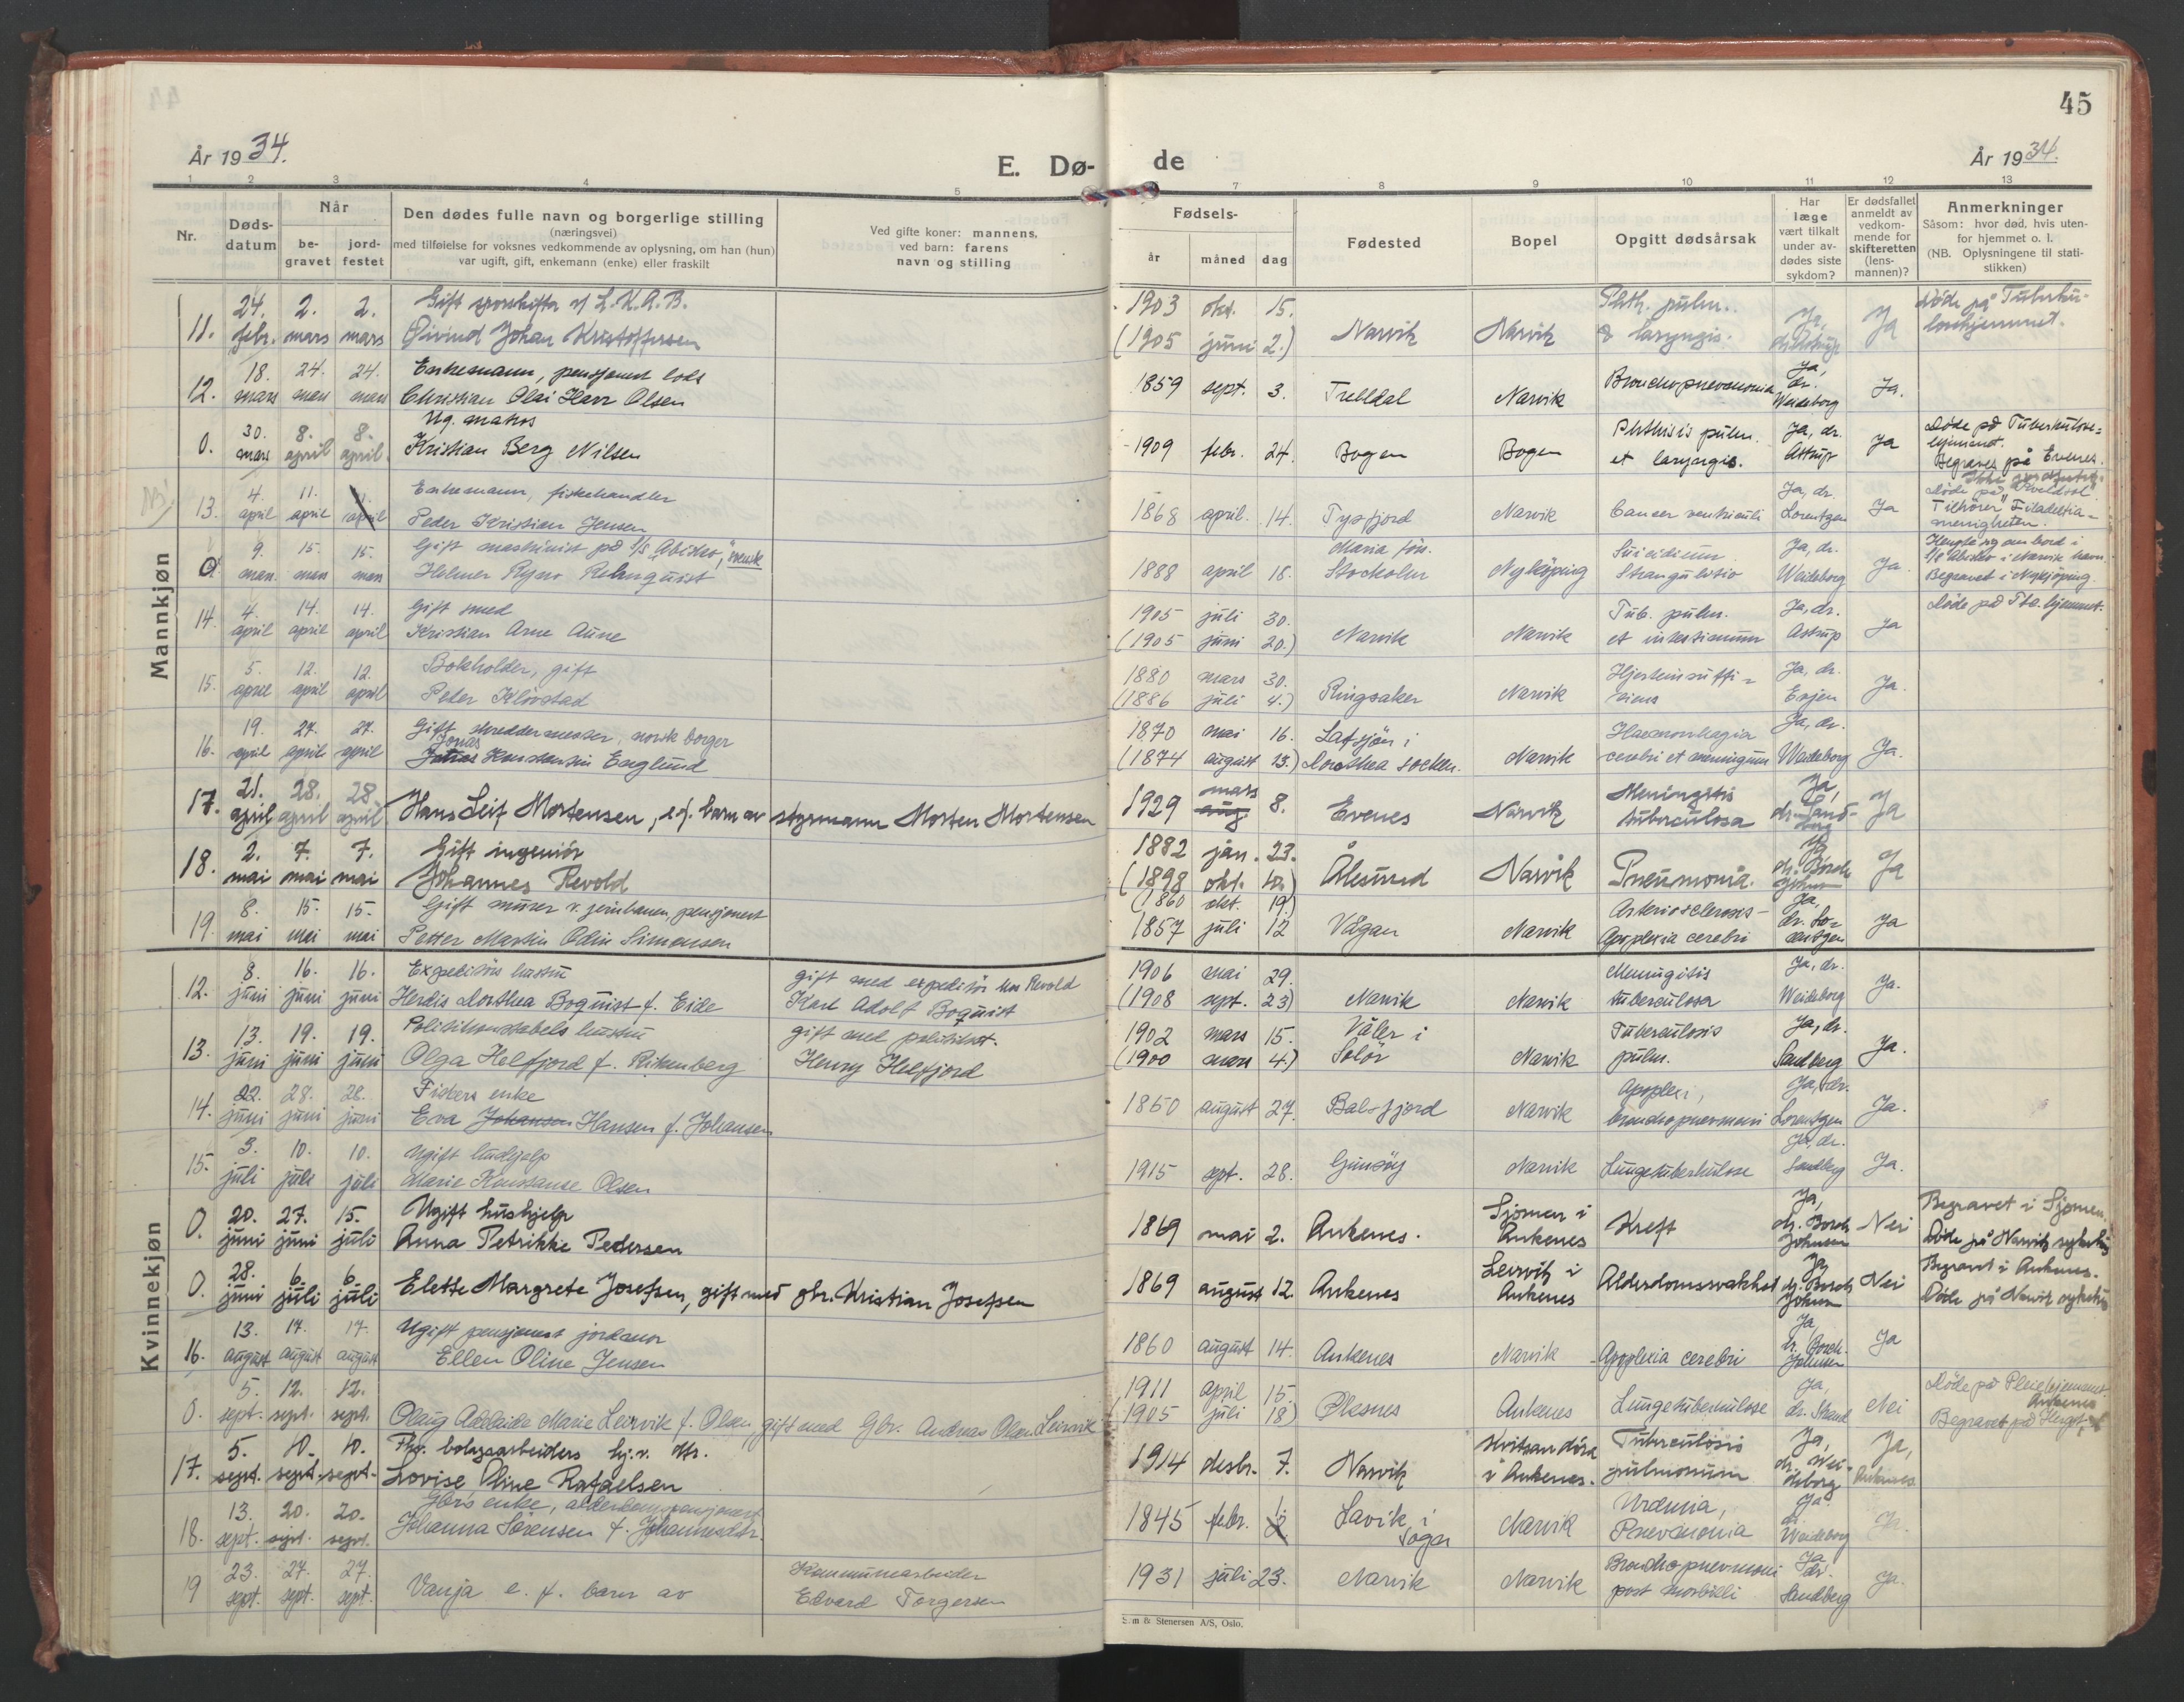 45
År 1934.
E. Dø-
de
År 1934.
1 2 3 4 5 7 8 9 10 11 12 13
Nr.
Døds-
datum
Når
be-
gravet
jord-
festet
Den dødes fulle navn og borgerlige stilling
(næringsvei)
med tilføielse for voksnes vedkommende av oplysning, om han (hun)
var ugift, gift, enkemann (enke) eller fraskilt
Ved gifte koner: mannens,
ved barn: farens
navn og stilling
Fødsels-
år måned dag
Fødested
Bopel
Opgitt dødsårsak
Har
læge
vært tilkalt
under av-
dødes siste
sykdom?
Er dødsfallet
anmeldt av
vedkom-
mende for
skifteretten
(lens-
mannen)?
Anmerkninger
Såsom: hvor død, hvis uten-
for hjemmet o. l.
(NB. Oplysningene til stati-
stikken)
Mannkjøn
24. 2. 2. Gift sporskifter v/ L.K.A.B. 1903 okt. 15. Phth. pulm. Døde på Tuberku-
11. febr. mars mars Øivind Johan Kristoffersen (1905 juni 2.) Narvik Narvik & laryngis. Ja, dr. Astrup Ja losehjemmet.
18. 24. 24. Enkemann, pensjonert lods Ja, dr.
12. mars mars mars Christian Olai Harr Olsen 1859 sept. 3. Trelldal Narvik Bronchopneumonia Weideborg Ja.
30. 8. 8. Ug. matros Phthisis pulm. Ja, dr. Døde på Tuberkulose-
0. mars april april Kristian Berg Nilsen 1909 febr. 24. Bogen Bogen et laryngis. Astrup Ja hjemmet.
Begraves på Evenes.
NB!
4. 11. Enkemann, fiskehandler Ja, dr. Ikke jordfestet.
13. april april april Peder Kristian Jensen 1868 april. 14. Tysfjord Narvik Cancer ventriculi Lorentzen Ja Tilhører "Filadelfia-
menigheten.
9. 15. 15. Gift maskinist på S/S "Abisko", svensk Maria förs. Suicidium Ja, dr. Hengte sig ombord i
0. mars mars mars Helmer Ryno Rehnquist 1888 april 18. Stockolm Nyköping Strangulatio Weideborg Ja. S/S Abisko i Narvik havn.
Begravet i Nykjöping.
4. 14. 14. Gift smed 1905 juli 30. Tub. pulm. Ja, dr. Døde på Tbc. hjemmet.
14. april april april Kristian Arne Aune (1905 juni 20.) Narvik Narvik et intestinum Astrup Ja
5. 12. 12. Bokholder, gift 1880 mars 30. Hjerteinsuffi- Ja, dr.
15. april april april Peter Klövstad (1886 juli 4.) Ringsaker Narvik siens Evjen Ja.
19. 27. 27. Gift skreddermester, norsk borger 1870 mai 16. Lafsjön i Haemorrhagia Ja, dr.
16. april april april Jonas Konstantin Englund (1874 august 23.) Dorothea socken. Narvik cerebri et meningum Weideborg Ja.
21. 28. 28. mars Meningitis Ja,
17. april april april Hans Leif Mortensen, e.f. barn av styrmann Morten Mortensen 1929 aug 8. Evenes Narvik tuberculosa dr. Sand-
berg Ja
2. 7. 7. Gift ingeniör 1882 jan. 23. Ja
18. mai mai mai Johannes Revold (1898 okt. 10.) Ålesund Narvik Pneumonia. dr. Borch Johnsen Ja
8. 15. 15. Gift murer v. jernbanen, pensjonert (1860 okt. 19.) Arteriosclerosis- Ja,
19. mai mai mai Petter Martin Odin Simonsen 1857 juli 12 Vågan Narvik Apoplexia cerebri dr. Lo-
rentzen Ja
Kvinnekjøn
8. 16. 16. Expeditörs hustru gift med expeditör hos Revold 1906 mai 29. Meningitis Ja, dr.
12. juni juni juni Herdis Dorthea Boquist f. Eide Karl Adolf Boquist (1908 sept. 23) Narvik Narvik tuberculosa Weideborg Ja.
13. 19. 19. Politikonstabels hustru gift med politikst. 1902 mars 15. Våler i Tuberculosis Ja, dr.
13. juni juni juni Olga Helfjord f. Rismberg Henry Helfjord (1900 mars 4.) Solör Narvik pulm. Sandberg Ja.
22. 28. 28. Fiskers enke Apoplexi, Ja, dr.
14. juni juni juni Eva Johansen Hansen f. Johansen 1850 august 27. Balsfjord Narvik bronchopneumoni Lorentzen Ja.
3. 10. 10. Ugift hushjelp Ja, dr.
15. juli juli juli Marie Konstanse Olsen 1915 spt. 28. Gimsöy Narvik Lungetuberkulose Sandberg Ja.
20. 27. 15. Ugift hushjelp Sjomen i Ja, Begravet i Sjomen.
0. juni juni juli Anna Petrikke Pedersen 1869 mai 2. Ankenes. Ankenes Kreft dr. Borch Johnsen Nei Døde på Narvik sykehus
28. 6. 6. Leirvik i Ja Begravet i Ankenes.
0. juni juli juli Elette Margrete Josefsen, gift med gbr. Kristian Josefsen 1869 august 12. Ankenes Ankenes Alderdomssvakhet dr. Borch Johnsen Nei Døde på Narvik sykehus
13. 17. 17. Ugift pensjonert jordmor Ja,
16. august august august Ellen Oline Jensen 1860 august 14. Ankenes Narvik Apoplexia cerebri dr. Borch-
Johnsen Ja
5. 12. 12. 1911 april 15. Ja, Døde på Pleiehjemmet.
Ankenes
0. sept. sept. sept. Olaug Adelaide Marie Leirvik f. Olsen, gift med Gbr. Andreas Olan Leirvik (1905 juli 18) Ankenes Lungetuberkulose Nei Begravet på
5. 10. 10. Fhv. bolagsarbeiders hj.v. dtr. Tuberculosis Ja, Ja,
17. sept. sept. sept. Lovise Oline Rafaelsen 1914 desbr. 7. Narvik i Ankenes. pulmonum dr. Wei-
deborg Ankenes
13. 20. 20. Gbrs enke, alderdomspensjonert Urämia, Ja.
18. sept. sept. sept. Johanna Sørensen f. Johannesdtr. 1845 febr. Lavik i
Sogn Narvik Pneumonia dr. Weideborg Ja.
23. 27. 27. Kommunearbeider Bronchopneumoni Ja
19 sept. sept. sept. Vanja e. f. barn av Edvard Torgersen 1931 juli 23. Narvik Narvik post morbilli dr. Sandberg Ja.
& Stenersen A/S, Oslo.